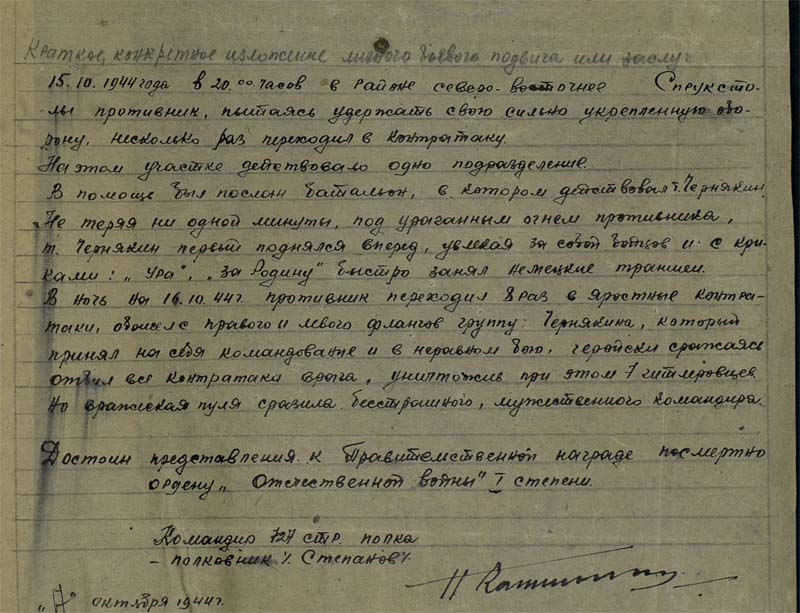 Краткое, конкретное изложение личного боевого подвига или заслуг
15.10.1944 года в 20.00 часов в районе северо-восточное Спруксто-
лы противник, пытаясь удержать свою сильно укрепленную обо-
рону, несколько раз переходил в контратаку.
На этом участке действовало одно подразделение.
В помощь был послан батальон, в котором действовал т. Чернякин.
Не теряя ни одной минуты, под ураганным огнем противника,
т. Чернякин первый поднялся вперед, увлекая за собой бойцов и с кри-
ками: „Ура", „за Родину" быстро занял немецкие траншеи.
В ночь на 16.10.44г. противник переходил 8 раз в яростные контра-
таки, обошел с правого и левого флангов группу Чернякина, который
принял на себя командование и в неравном бою, геройски сражаясь
отбил все контратаки врага, уничтожив при этом 7 гитлеровцев
Но вражеская пуля сразила бесстрашного, мужественного командира.
Достоин представления к Правительственной награде посмертно
ордену „Отечественной войны" I степени.
Командир 727 стр. полка
- полковник /. Степанов/.
октября 1944г.